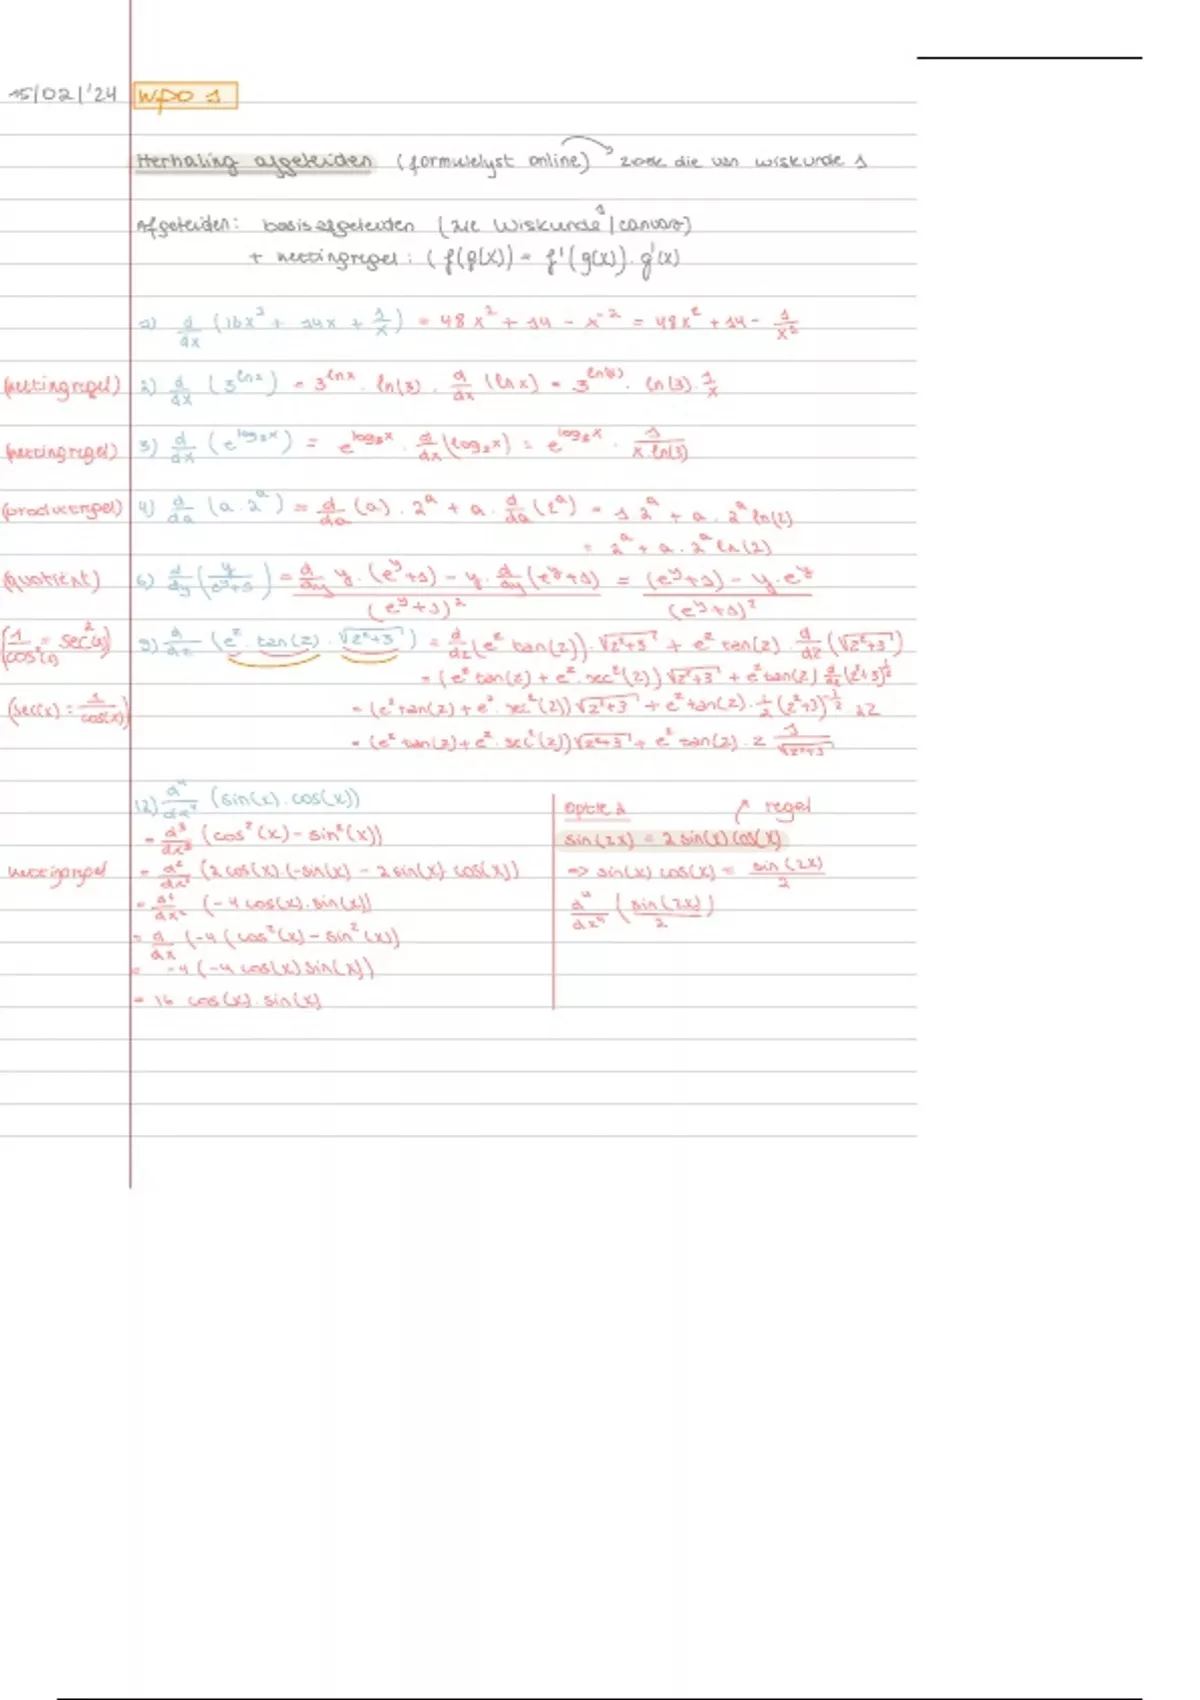 15/02/'24 WPO 1
Herhaling afgeleiden (formulelijst online) zoek die van wiskunde 1
Afgeleiden: basisafgeleiden (zie Wiskunde 1 | canvas)
+ kettingregel: (f(g(x)) = f'(g(x)).g'(x)
1) d/dx (16x³ + 14x + 1/x) = 48x² + 14 - x⁻² = 48x² + 14 - 1/x²
(kettingregel) 2) d/dx (3^lnx) = 3^lnx . ln(3) . d/dx (lnx) = 3^ln(x) . ln(3). 1/x
(kettingregel) 3) d/dx (e^log₃x) = e^log₃x . d/dx (log₃x) = e^log₃x . 1/(x.ln(3))
(productregel) 4) d/da (a.2^a) = d/da (a) . 2^a + a . d/da (2^a) = 1 2^a + a . 2^a ln(2)
= 2^a + a . 2^a ln(2)
(quotiënt) 6) d/dy (y/(e^y+1)) = (d/dy y . (e^y+1) - y . d/dy (e^y+1))/(e^y+1)² = ((e^y+1) - y.e^y)/(e^y+1)²
(1/cos²(x) = sec²(x)) 9) d/dz (e^z . tan(z) . √(z²+3)) = d/dz (e^z tan(z)).√(z²+3) + e^z tan(z) . d/dz (√(z²+3))
= (e^z tan(z) + e^z . sec²(z)) √(z²+3) + e^z tan(z) d/dz (z²+3)^½
(sec(x) = 1/cos(x)) = (e^z tan(z) + e^z . sec²(z)) √(z²+3) + e^z tan(z) . ½ (z²+3)^-½ . 2z
= (e^z tan(z) + e^z . sec²(z)) √(z²+3) + e^z tan(z) . z 1/√(z²+3)
12) d⁴/dx⁴ (sin(x).cos(x))
= d³/dx³ (cos²(x) - sin²(x))
kettingregel = d²/dx² (2cos(x).(-sin(x) - 2sin(x) cos(x))
= d²/dx² (-4cos(x).sin(x))
= d/dx (-4(cos²(x) - sin²(x))
= -4(-4cos(x)sin(x))
= 16 cos(x).sin(x)
Optie 2 regel
sin(2x) = 2sin(x)cos(x)
=> sin(x) cos(x) = sin(2x)/2
d⁴/dx⁴ (sin(2x)/2)